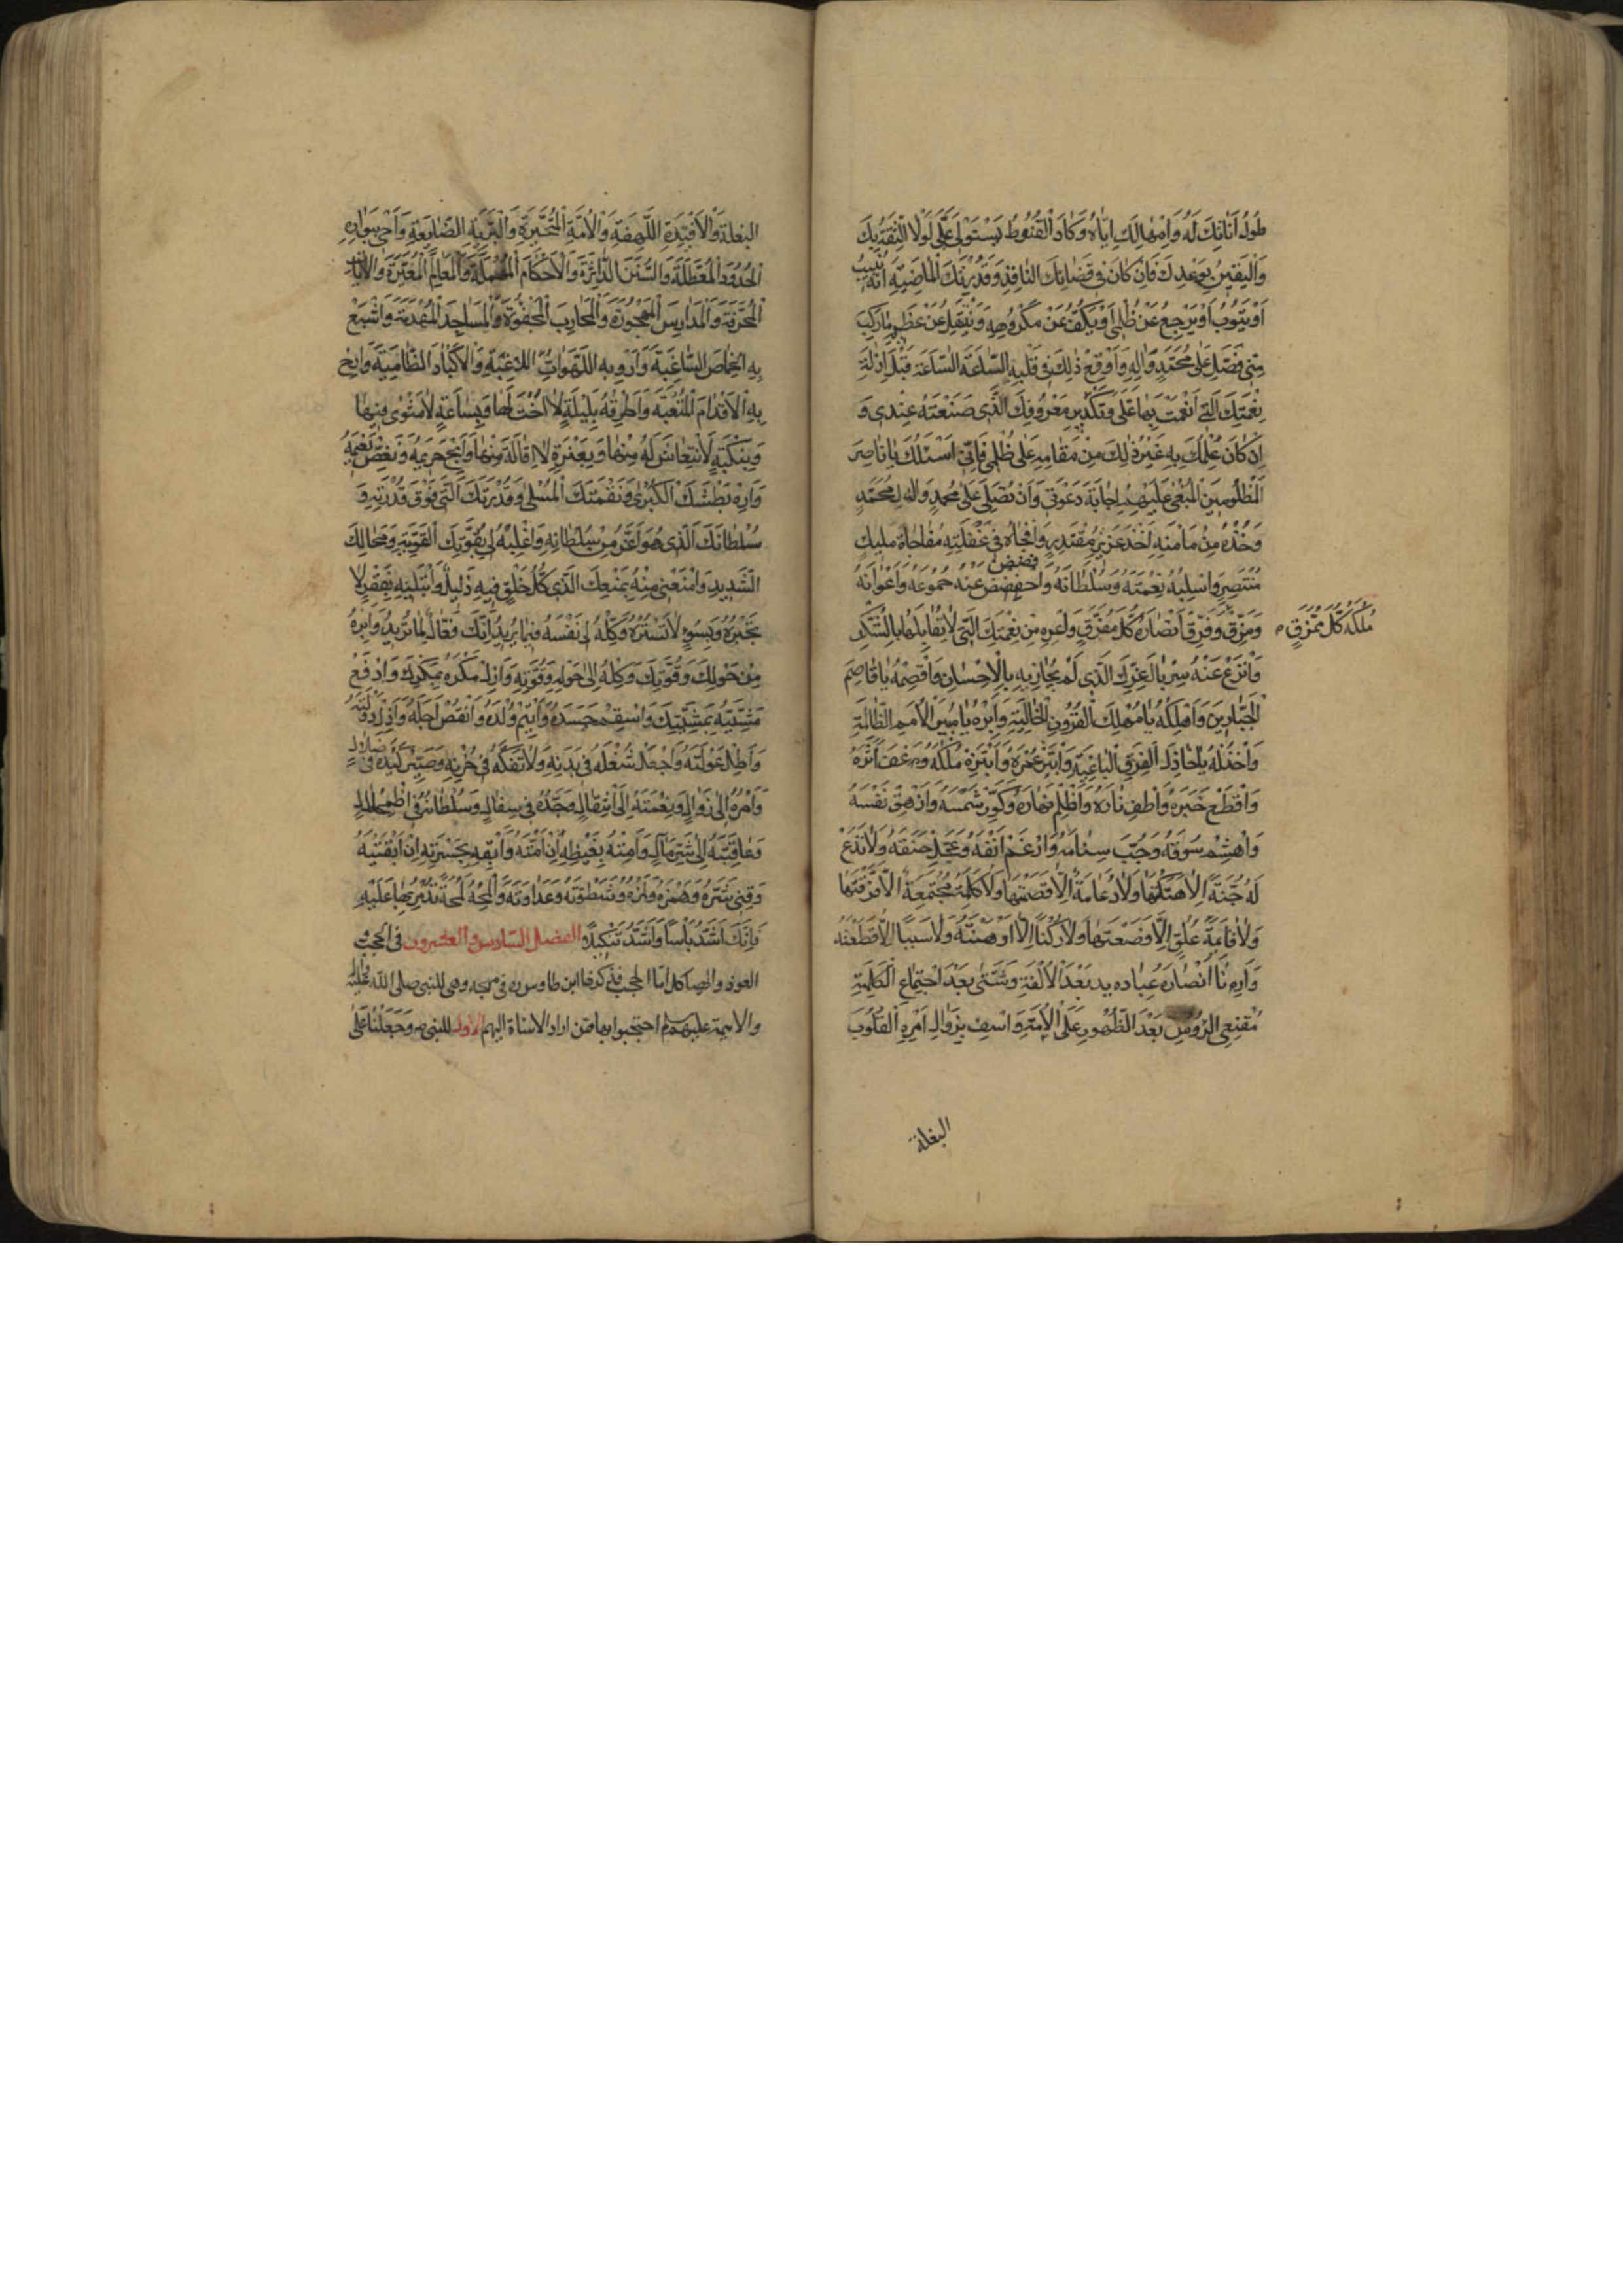 طُولُ أَنَاتِكَ لَهُ وَإِمْهَالِكَ إِيَّاهُ وَكَادَ الْقُنُوطُ يَسْتَوْلِي عَلَيَّ لَوْلَا الثِّقَةُ بِكَ
وَالْيَقِينُ بِوَعْدِكَ فَإِنْ كَانَ فِي قَضَائِكَ النَّافِذِ وَقُدْرَتِكَ الْمَاضِيَةِ أَنَّهُ يُنِيبُ
أَوْ يَتُوبُ أَوْ يَرْجِعُ عَنْ ظُلْمِي أَوْ يَكُفُّ عَنْ مَكْرُوهِي وَيَنْتَقِلُ عَنْ عَظِيمِ مَا رَكِبَ
مِنِّي فَصَلِّ عَلَى مُحَمَّدٍ وَآلِهِ وَأَوْقِعْ ذَلِكَ فِي قَلْبِهِ السَّاعَةَ السَّاعَةَ قَبْلَ إِزَالَةِ
نِعْمَتِكَ الَّتِي أَنْعَمْتَ بِهَا عَلَيَّ وَتَكْدِيرِ مَعْرُوفِكَ الَّذِي صَنَعْتَهُ عِنْدِي وَ
إِنْ كَانَ عِلْمُكَ بِهِ غَيْرَ ذَلِكَ مِنْ مَقَامِهِ عَلَى ظُلْمِي فَإِنِّي أَسْئَلُكَ يَا نَاصِرَ
الْمَظْلُومِينَ الْمَبْغِيِّ عَلَيْهِمْ إِجَابَةَ دَعْوَتِي وَأَنْ تُصَلِّيَ عَلَى مُحَمَّدٍ وَآلِ مُحَمَّدٍ
وَخُذْهُ مِنْ مَأْمَنِهِ أَخْذَ عَزِيزٍ مُقْتَدِرٍ وَافْجَأْهُ فِي غَفْلَتِهِ مُفَاجَاةَ مَلِيكٍ
مُنْتَصِرٍ وَاسْلُبْهُ نِعْمَتَهُ وَسُلْطَانَهُ وَ عَنْهُ جُمُوعَهُ وَأَعْوَانَهُ
وَمَزِّقْ مُلْكَهُ كُلَّ مُمَزَّقٍ وَفَرِّقْ أَنْصَارَهُ كُلَّ مُفَرَّقٍ وَأَعْرِهِ مِنْ نِعْمَتِكَ الَّتِي لَا يُقَابِلُهَا بِالشُّكْرِ
وَانْزَعْ عَنْهُ سِرْبَالَ عِزِّكَ الَّذِي لَمْ يُجَازِيهِ بِالْإِحْسَانِ وَاقْصِمْهُ يَا قَاصِمَ
الْجَبَّارِينَ وَأَهْلِكْهُ يَا مُهْلِكَ الْقُرُونِ الْخَالِيَةِ وَأَبِرْهُ يَا مُبِيرَ الْأُمَمِ الظَّالِمَةِ
وَاخْذُلْهُ يَا خَاذِلَ الْفِرَقِ الْبَاغِيَةِ وَابْتُرْ عُمْرَهُ وَابْتَزَّهُ مُلْكَهُ وَعَفِّ أَثَرَهُ
وَاقْطَعْ خَبَرَهُ وَأَطْفِ نَارَهُ وَأَظْلِمْ نَهَارَهُ وَكَوِّرْ شَمْسَهُ وَأَزْهِقْ نَفْسَهُ
وَاهْشِمْ سُوقَهُ وَجُبَّ سَنَامَهُ وَأَرْغِمْ أَنْفَهُ وَعَجِّلْ حَتْفَهُ وَلَا تَدَعْ
لَهُ جُنَّةً إِلَّا هَتَكْتَهَا وَلَا دِعَامَةً إِلَّا قَصَمْتَهَا وَلَا كَلِمَةً مُجْتَمِعَةً إِلَّا فَرَّقْتَهَا
وَلَا قَائِمَةَ عُلُوٍّ إِلَّا وَضَعْتَهَا وَلَا رُكْنًا إِلَّا أَوْهَنْتَهُ وَلَا سَبَبًا إِلَّا قَطَعْتَهُ
وَأَرِنَا أَنْصَارَهُ عَبَادِيدَ بَعْدَ الْأُلْفَةِ وَشَتَّى بَعْدَ اجْتِمَاعِ الْكَلِمَةِ
مُقْنِعِي الرُّءُوسِ بَعْدَ الظُّهُورِ عَلَى الْأُمَّةِ وَاشْفِ بِزَوَالِ أَمْرِهِ الْقُلُوبَ
البغلة
البغلة وَالْأَفْئِدَةِ اللَّهِفَةِ وَالْأُمَّةِ الْمُتَحَيِّرَةِ وَالْبَرِيَّةِ الضَّايِعَةِ وَأَحْيِ بِبَوَارِهِ
الْحُدُودَ الْمُعَطَّلَةَ وَالسُّنَنَ الدَّاثِرَةَ وَالْأَحْكَامَ الْمُهْمَلَةَ وَالْمَعَالِمَ الْمُغَيَّرَةَ وَالْآيَاتِ
الْمُحَرَّفَةَ وَالْمَدَارِسَ الْمَهْجُورَةَ وَالْمَحَارِيبَ الْمَجْفُوَّةَ وَالْمَسَاجِدَ الْمَهْدُمَةَ وَأَشْبِعْ
بِهِ الْخِمَاصَ السَّاغِبَةَ وَأَرْوِ بِهِ اللَّهَوَاتِ اللَّاغِبَةَ وَالْأَكْبَادَ الظَّامِئَةَ وَأَرِحْ
بِهِ الْأَقْدَامَ الْمُتْعَبَةَ وَاطْرُقْهُ بِلَيْلَةٍ لَا أُخْتَ لَهَا وَبِسَاعَةٍ لَا مَثْوَى فِيهَا
وَبِنَكْبَةٍ لَا انْتِعَاشَ لَهُ مِنْهَا وَبِعَثْرَةٍ لَا إِقَالَةَ مِنْهَا وَأَبِحْ حَرِيمَهُ وَنَغِّصْ نَعِيمَهُ
وَأَرِهِ بَطْشَتَكَ الْكُبْرَى وَنَقْمَتَكَ الْمُثْلَى وَقُدْرَتَكَ الَّتِي فَوْقَ قُدْرَتِهِ وَ
سُلْطَانَكَ الَّذِي هُوَ أَعَزُّ مِنْ سُلْطَانِهِ وَاغْلِبْهُ لِي بِقُوَّتِكَ الْقَوِيَّةِ وَمِحَالِكَ
الشَّدِيدِ وَامْنَعْنِي مِنْهُ بِمَنْعِكَ الَّذِي كُلُّ خَلْقٍ فِيهِ ذَلِيلٌ وَابْتَلِيهِ بِفَقْرٍ لَا
تَجْبُرُهُ وَبِسُوءٍ لَا تَسْتُرُهُ وَكِلْهُ إِلَى نَفْسِهِ فِيمَا يُرِيدُ إِنَّكَ فَعَّالٌ لِمَا تُرِيدُ وَأَبْرِهُ
مِنْ حَوْلِكَ وَقُوَّتِكَ وَكِلْهُ إِلَى حَوْلِهِ وَقُوَّتِهِ وَأَزِلْ مَكْرَهُ بِمَكْرِكَ وَادْفَعْ
مَشِيَّتَهُ بِمَشِيَّتِكَ وَاسْقِمْ جَسَدَهُ وَأَيْتِمْ وُلْدَهُ وَانْقُصْ أَجَلَهُ وَأَزِلْ دَوْلَتَهُ
وَأَطِلْ عَوْلَتَهُ وَاجْعَلْ شُغْلَهُ فِي بَدَنِهِ وَلَا تَفُكَّهُ فِي حُزْنِهِ وَصَيِّرْ كَيْدَهُ فِي ضَلَالٍ
وَأَمْرَهُ إِلَى زَوَالٍ وَنِعْمَتَهُ إِلَى انْتِقَالٍ وَجَدَّهُ فِي سِفَالٍ وَسُلْطَانَهُ فِي اضْمِحْلَالٍ
وَعَاقِبَتَهُ إِلَى شَرِّ مَآلٍ وَأَمِتْهُ بِغَيْظِهِ إِنْ أَمَتَّهُ وَأَبْقِهِ بِحَسْرَتِهِ إِنْ أَبْقَيْتَهُ
وَقِنِي شَرَّهُ وَهَمْزَهُ وَلَمْزَهُ وَسَطْوَتَهُ وَعَدَاوَتَهُ وَالْمَحْهُ لَمْحَةً تُدَمِّرُ بِهَا عَلَيْهِ
فَإِنَّكَ أَشَدُّ بَأْسًا وَأَشَدُّ تَنْكِيلًا الفصل السادس والعشرون في الحجب و
العوذ والهياكل اما الحجب فذكرها ابن طاوس ره في مهجه وهي للنبي صلى الله عليه
والايمة عليهم السلام احتجبوا بها ممن اراد الاساءة اليهم الاول للنبي ص وَجَعَلْنَا عَلَى